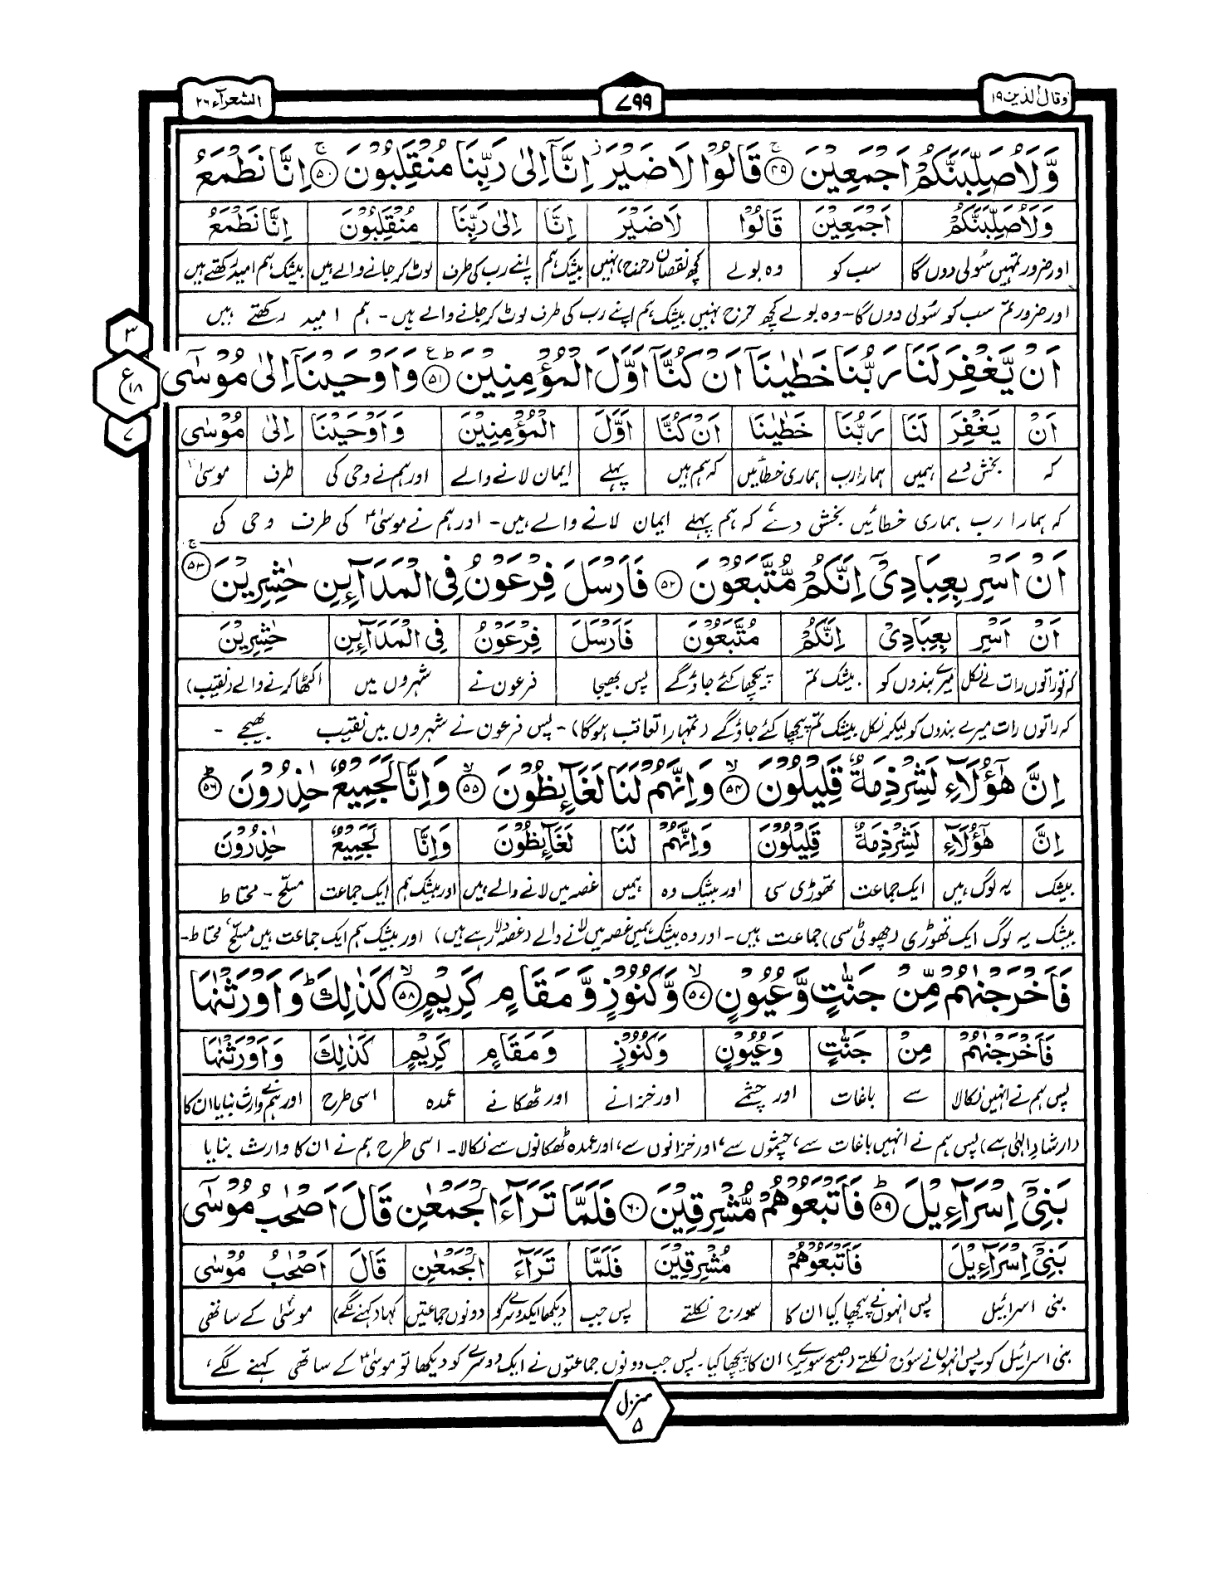 وقال الذین ۱۹
۷۹۹
الشعرآء ۲۶
وَّلَاُصَلِّبَنَّكُمْ اَجْمَعِیْنَ ۴۹ۚ قَالُوْا لَا ضَیْرَ ز اِنَّاۤ اِلٰی رَبِّنَا مُنْقَلِبُوْنَ ۵۰ۚ اِنَّا نَطْمَعُ
وَلَاُصَلِّبَنَّكُمْ اَجْمَعِیْنَ قَالُوْا لَا ضَیْرَ اِنَّا اِلٰی رَبِّنَا مُنْقَلِبُوْنَ اِنَّا نَطْمَعُ
اور ضرور تمہیں سُولی دوں گا سب کو وہ بولے کچھ نقصان (حرج) نہیں بیشک ہم اپنے رب کی طرف لوٹ کر جانے والے ہیں بیشک ہم امید رکھتے ہیں
اور ضرور تم سب کو سُولی دوں گا۔ وہ بولے کچھ حرج نہیں بیشک ہم اپنے رب کی طرف لوٹ کر جانے والے ہیں۔ ہم امید رکھتے ہیں
۳
ع
۱۸
۷
اَنْ یَّغْفِرَ لَنَا رَبُّنَا خَطٰیٰنَاۤ اَنْ كُنَّاۤ اَوَّلَ الْمُؤْمِنِیْنَ ۵۱ؕ۠ وَاَوْحَیْنَاۤ اِلٰی مُوْسٰۤی
اَنْ یَغْفِرَ لَنَا رَبُّنَا خَطٰیٰنَا اَنْ كُنَّا اَوَّلَ الْمُؤْمِنِیْنَ وَاَوْحَیْنَا اِلٰی مُوْسٰی
کہ بخش دے ہمیں ہمارا رب ہماری خطائیں کہ ہم ہیں پہلے ایمان لانے والے اور ہم نے وحی کی طرف موسیٰؑ
کہ ہمارا رب ہماری خطائیں بخش دے گا کہ ہم پہلے ایمان لانے والے ہیں۔ اور ہم نے موسیٰؑ کی طرف وحی کی
اَنْ اَسْرِ بِعِبَادِیْۤ اِنَّكُمْ مُّتَّبَعُوْنَ ۵۲ فَاَرْسَلَ فِرْعَوْنُ فِی الْمَدَآىِٕنِ حٰشِرِیْنَ ۵۳ۚ
اَنْ اَسْرِ بِعِبَادِیْ اِنَّكُمْ مُتَّبَعُوْنَ فَاَرْسَلَ فِرْعَوْنُ فِی الْمَدَآىِٕنِ حٰشِرِیْنَ
کہ تو راتوں رات لے نکل میرے بندوں کو بیشک تم پیچھا کئے جاؤ گے پس بھیجا فرعون نے شہروں میں اکٹھا کرنے والے (نقیب)
کہ راتوں رات میرے بندوں کو لیکر نکل بیشک تم پیچھا کئے جاؤ گے (تمہارا تعاقب ہوگا)۔ پس فرعون نے شہروں میں نقیب بھیجے۔
اِنَّ هٰۤؤُلَآءِ لَشِرْذِمَةٌ قَلِیْلُوْنَ ۵۴ۙ وَاِنَّهُمْ لَنَا لَغَآىِٕظُوْنَ ۵۵ۙ وَاِنَّا لَجَمِیْعٌ حٰذِرُوْنَ ۵۶ؕ
اِنَّ هٰۤؤُلَآءِ لَشِرْذِمَةٌ قَلِیْلُوْنَ وَاِنَّهُمْ لَنَا لَغَآىِٕظُوْنَ وَاِنَّا لَجَمِیْعٌ حٰذِرُوْنَ
بیشک یہ لوگ ہیں ایک جماعت تھوڑی سی اور بیشک وہ ہمیں غصہ میں لانے والے ہیں اور بیشک ہم ایک جماعت مسلّح۔ محتاط
بیشک یہ لوگ ایک تھوڑی (چھوٹی سی) جماعت ہیں۔ اور وہ بیشک ہمیں غصہ میں لانے والے (غصہ دلا رہے ہیں) اور بیشک ہم ایک جماعت ہیں مسلّح، محتاط۔
فَاَخْرَجْنٰهُمْ مِّنْ جَنّٰتٍ وَّعُیُوْنٍ ۵۷ۙ وَّكُنُوْزٍ وَّمَقَامٍ كَرِیْمٍ ۵۸ۙ كَذٰلِكَؕ وَاَوْرَثْنٰهَا
فَاَخْرَجْنٰهُمْ مِنْ جَنّٰتٍ وَعُیُوْنٍ وَكُنُوْزٍ وَمَقَامٍ كَرِیْمٍ كَذٰلِكَ وَاَوْرَثْنٰهَا
پس ہم نے انہیں نکالا سے باغات اور چشمے اور خزانے اور ٹھکانے عمدہ اسی طرح اور ہم نے وارث بنایا ان کا
(ارشادِ الٰہی ہے) پس ہم نے انہیں باغات سے، چشموں سے، اور خزانوں سے، اور عمدہ ٹھکانوں سے نکالا۔ اسی طرح ہم نے ان کا وارث بنایا
بَنِیْۤ اِسْرَآءِیْلَ ۵۹ؕ فَاَتْبَعُوْهُمْ مُّشْرِقِیْنَ ۶۰ فَلَمَّا تَرَآءَ الْجَمْعٰنِ قَالَ اَصْحٰبُ مُوْسٰۤی
بَنِیْۤ اِسْرَآءِیْلَ فَاَتْبَعُوْهُمْ مُشْرِقِیْنَ فَلَمَّا تَرَآءَ الْجَمْعٰنِ قَالَ اَصْحٰبُ مُوْسٰی
بنی اسرائیل پس انہوں نے پیچھا کیا ان کا سورج نکلتے پس جب دیکھا ایک دوسرے کو دونوں جماعتیں کہا (کہنے لگے) موسیٰ کے ساتھی
بنی اسرائیل کو پس انہوں نے سورج نکلتے (صبح سویرے) ان کا پیچھا کیا۔ پس جب دونوں جماعتوں نے ایک دوسرے کو دیکھا تو موسیٰؑ کے ساتھی کہنے لگے،
منزل
۵